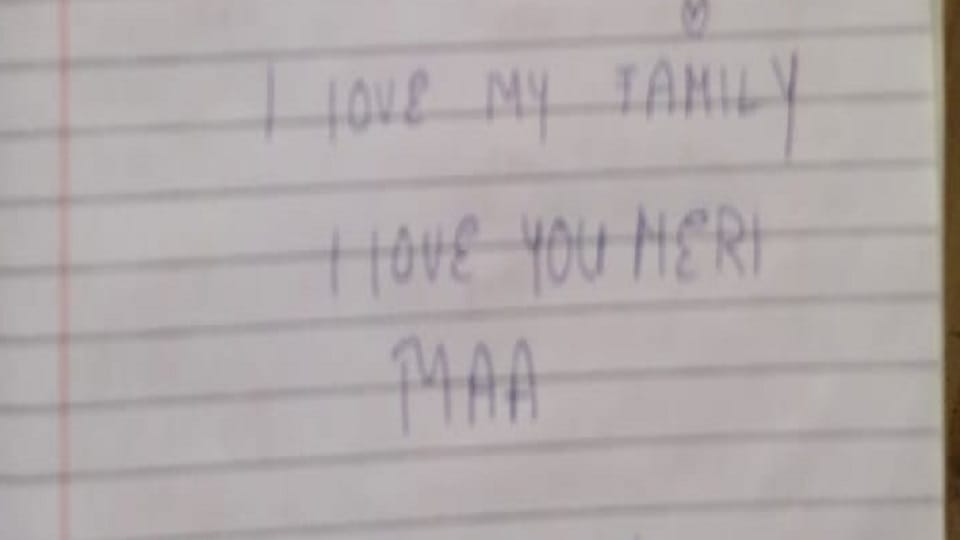 I LOVE MY FAMILY
I LOVE YOU MERI
MAA